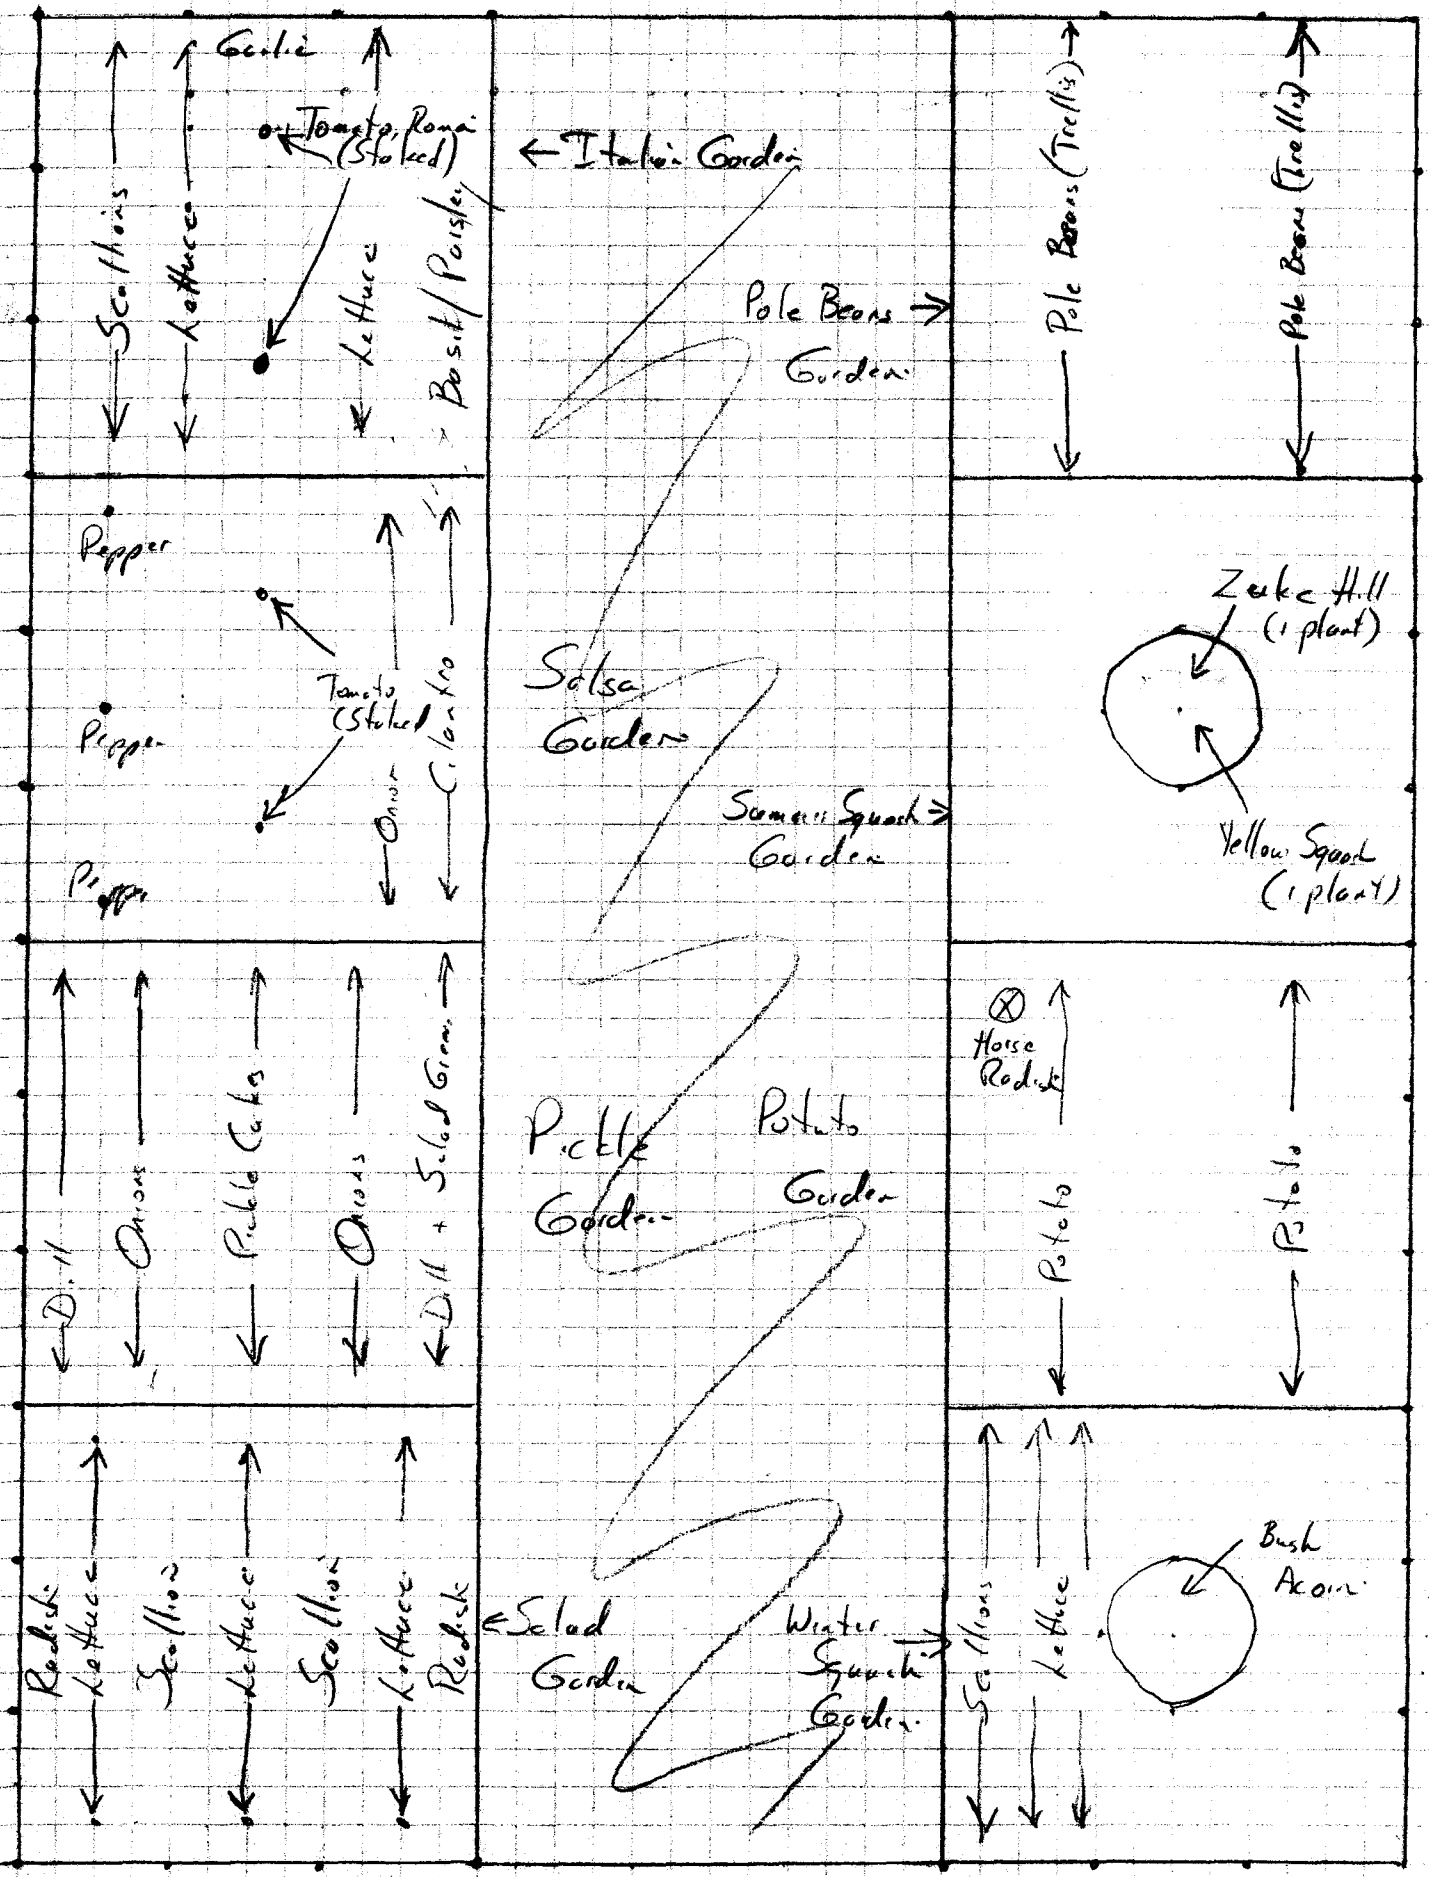 Garlic
Tomato, Roma
(Staked)
Scallions
Lettuce
Lettuce
Basil/Parsley
← Italian Garden
Pole Beans →
Garden
Pole Beans (Trellis)
Pole Beans (Trellis)
Pepper
Pepper
Pepper
Tomato
(Staked
Onion
Cilantro
Salsa
Garden
Summer Squash →
Garden
Zuke Hill
(1 plant)
Yellow Squash
(1 plant)
Dill
Onions
Pickle Cukes
Onions
Dill + Salad Greens
Pickle
Garden
Potato
Garden
Horse
Radish
Potato
Potato
Radish
Lettuce
Scallion
Lettuce
Scallion
Lettuce
Radish
← Salad
Garden
Winter
Squash
Garden
Scallions
Lettuce
Bush
Acorn